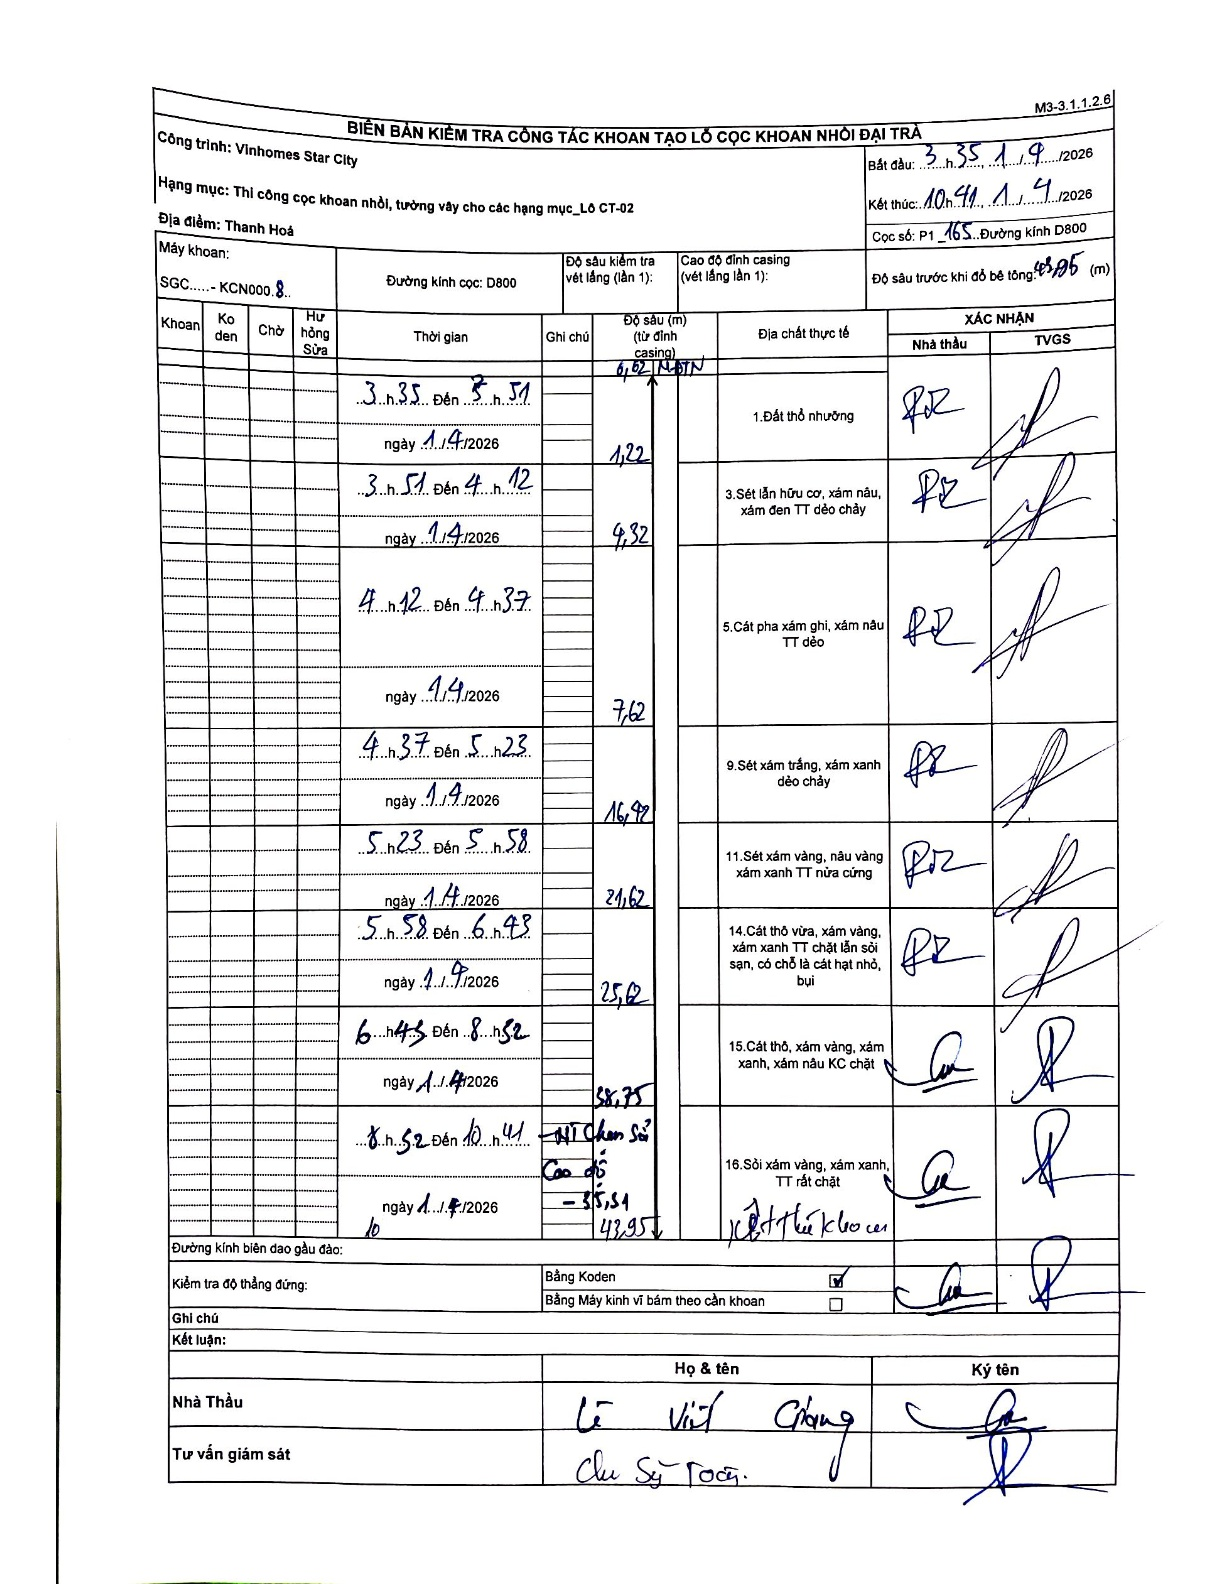 M3-3.1.1.2.6
BIÊN BẢN KIỂM TRA CÔNG TÁC KHOAN TẠO LỖ CỌC KHOAN NHỒI ĐẠI TRÀ
Công trình: Vinhomes Star City
Hạng mục: Thi công cọc khoan nhồi, tường vây cho các hạng mục_Lô CT-02
Địa điểm: Thanh Hoá
Bắt đầu: 3 h 35, 1 / 4 /2026
Kết thúc: 10 h 41, 1 / 4 /2026
Cọc số: P1 _165 Đường kính D800
Máy khoan:
SGC.....- KCN000.8..
Đường kính cọc: D800
Độ sâu kiểm tra vét lắng (lần 1):
Cao độ đỉnh casing (vét lắng lần 1):
Độ sâu trước khi đổ bê tông: 43,95 (m)
Khoan Ko đen Chờ Hư hỏng Sửa Thời gian Ghi chú Độ sâu (m) (từ đỉnh casing) Địa chất thực tế XÁC NHẬN
Nhà thầu TVGS
MĐTN
3 h 35 Đến 3 h 51
1.Đất thổ nhưỡng
ngày 1/4/2026
1,22
3 h 51 Đến 4 h 12
3.Sét lẫn hữu cơ, xám nâu, xám đen TT dẻo chảy
ngày 1/4/2026
4,32
4 h 12 Đến 4 h 37
5.Cát pha xám ghi, xám nâu TT dẻo
ngày 1/4/2026
7,62
4 h 37 Đến 5 h 23
9.Sét xám trắng, xám xanh dẻo chảy
ngày 1/4/2026
16,92
5 h 23 Đến 5 h 58
11.Sét xám vàng, nâu vàng xám xanh TT nửa cứng
ngày 1/4/2026
21,62
5 h 58 Đến 6 h 43
14.Cát thô vừa, xám vàng, xám xanh TT chặt lẫn sỏi sạn, có chỗ là cát hạt nhỏ, bụi
ngày 1/4/2026
25,62
6 h 43 Đến 8 h 52
15.Cát thô, xám vàng, xám xanh, xám nâu KC chặt
ngày 1/4/2026
38,75
8 h 52 Đến 10 h 41
-NT Chạm Sỏi
Cao độ
-35,31
16.Sỏi xám vàng, xám xanh, TT rất chặt
ngày 1/4/2026
10
43,95
Kết thúc khoan
Đường kính biên dao gầu đào:
Kiểm tra độ thẳng đứng:
Bằng Koden ☑
Bằng Máy kinh vĩ bám theo cần khoan ☐
Ghi chú
Kết luận:
Họ & tên Ký tên
Nhà Thầu
Lê Viết Giang
Tư vấn giám sát
Chu Sỹ Toàn.